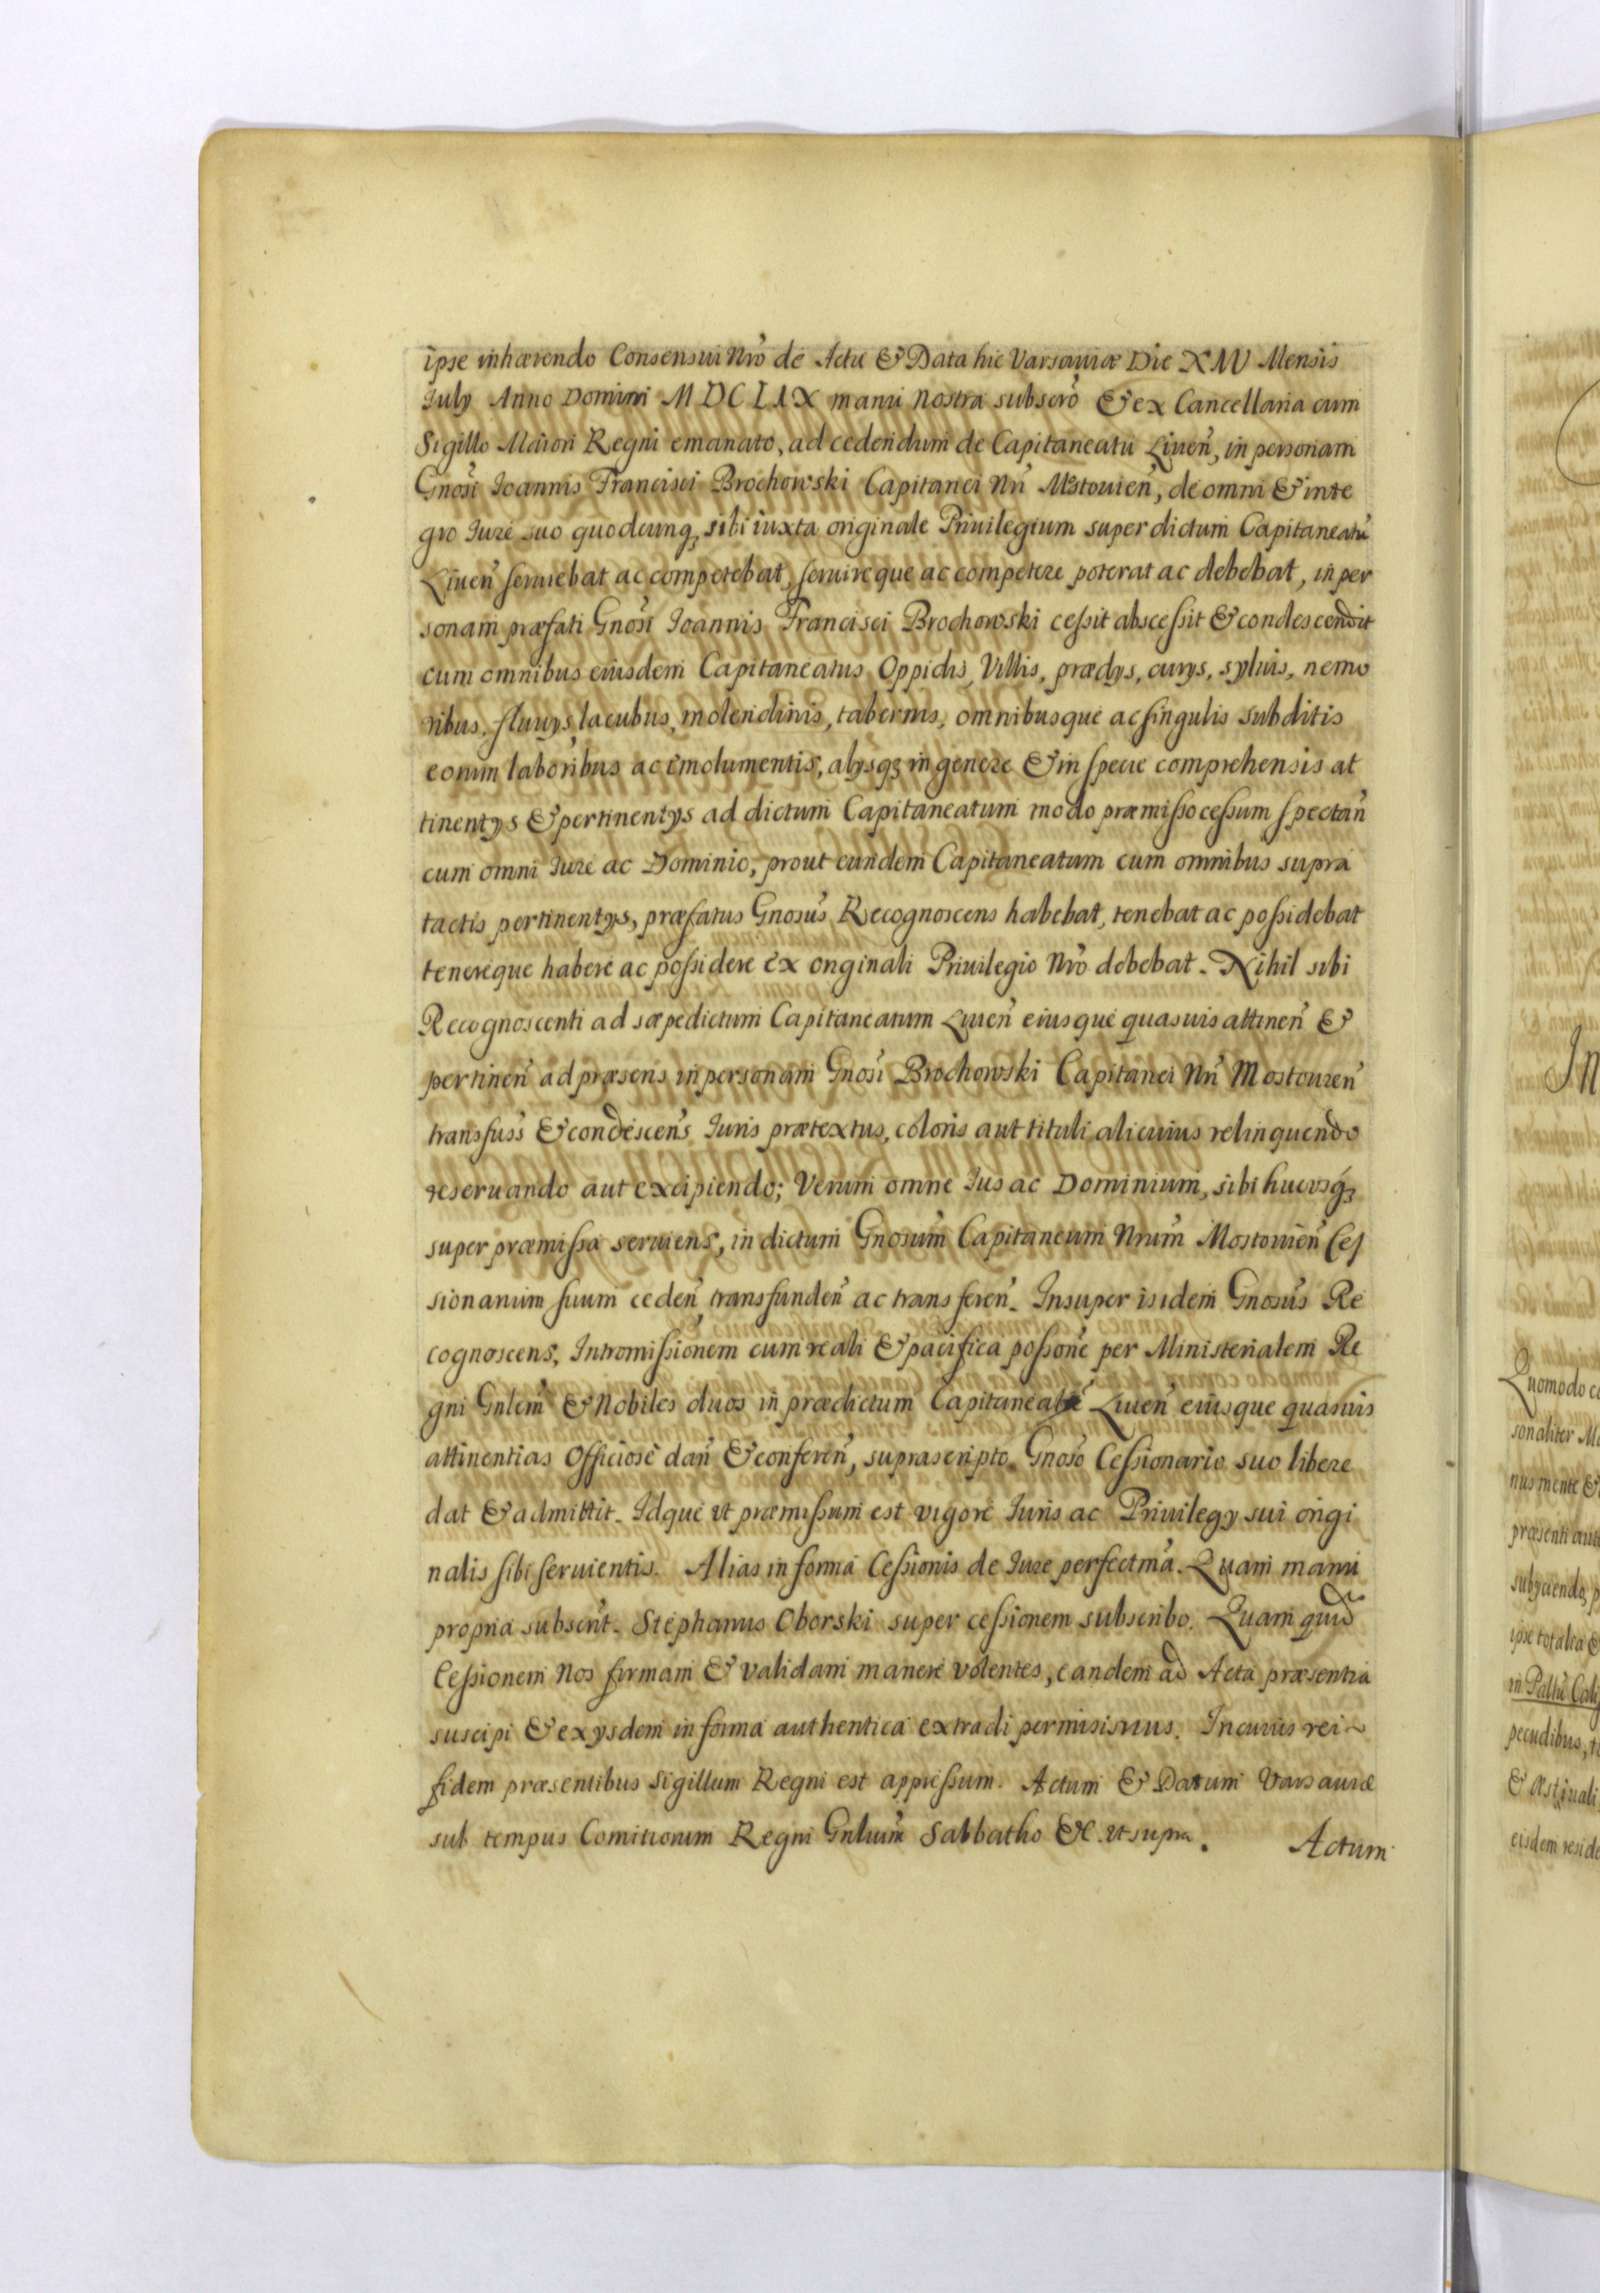 ipse inhærendo Consensui Nrõ de Actu & Data hic Varsaviæ Die XXIV Mensis
July Anno Domini MDCLIX manu nostra subscrõ & ex Cancellaria cum
Sigillo Maiori Regni emanato, ad cedendum de Capitaneatu Liveñ, in personam
Gnosi Joannis Francisci Brochowski Capitanei Nri Mostovieñ, de omni & inte
gro Jure suo quodcunq; sibi iuxta originale Privilegium super dictum Capitaneatũ
Liveñ serviebat ac competebat, servireque ac competere poterat ac debebat, in per
sonam præfati Gnosi Joannis Francisci Brochowski cessit abscessit & condescendit
cum omnibus eiusdem Capitaneatus Oppidis, Villis, prædys, curys, sylvis, nemo
ribus, fluvys, lacubus, molendinis, tabernis, omnibusque ac singulis subditis
eorum laboribus ac emolumentis, alysq; in genere & in specie comprehensis at
tinentys & pertinentys ad dictum Capitaneatum modo præmisso cessum spectañ
cum omni Jure ac Dominio, prout eundem Capitaneatum cum omnibus supra
tactis pertinentys, præfatus Gnosus Recognoscens habebat, tenebat ac possidebat
tenereque habere ac possidere ex originali Privilegio Nrõ debebat. Nihil sibi
Recognoscenti ad sæpedictum Capitaneatum Liveñ eiusque quasvis attineñ &
pertineñ ad præsens in personam Gnosi Brochowski Capitanei Nri Mostovieñ
transfuss & condescens Juris prætextus, coloris aut tituli alicuius relinquendo
reservando aut excipiendo; Verum omne Jus ac Dominium, sibi hucusq;
super præmissa serviens, in dictum Gnosum Capitaneum Nrum Mostovieñ Ces
sionarium suum cedeñ transfundeñ ac transfereñ. Insuper isidem Gnosus Re
cognoscens, Intromissionem cum reali & pacifica possone per Ministerialem Re
gni Gnlem & Nobiles duos in prædictum Capitaneatũ Liveñ eiusque quasvis
attinentias Officiose dañ & confereñ, suprascripto Gnoso Cessionario suo libere
dat & admittit. Idque ut præmissum est vigore Juris ac Privilegy sui origi
nalis sibi servientis. Alias in forma Cessionis de Jure perfectma. Quam manu
propria subscrit. Stephanus Oborski super cessionem subscribo. Quam quid
Cessionem Nos firmam & validam manere volentes, eandem ad Acta præsentia
suscipi & ex ysdem in forma authentica extradi permisimus. In cuius rei
fidem præsentibus Sigillum Regni est appressum. Actum & Datum Varsaviæ
sub tempus Comitiorum Regni Gnlium Sabbatho &c. ut supra.
Actum
In
Quomodo co
sonaliter
nus mente &
præsenti aut
subyciendo, p
ipse totalia &
pecudibus,
eisdem reside